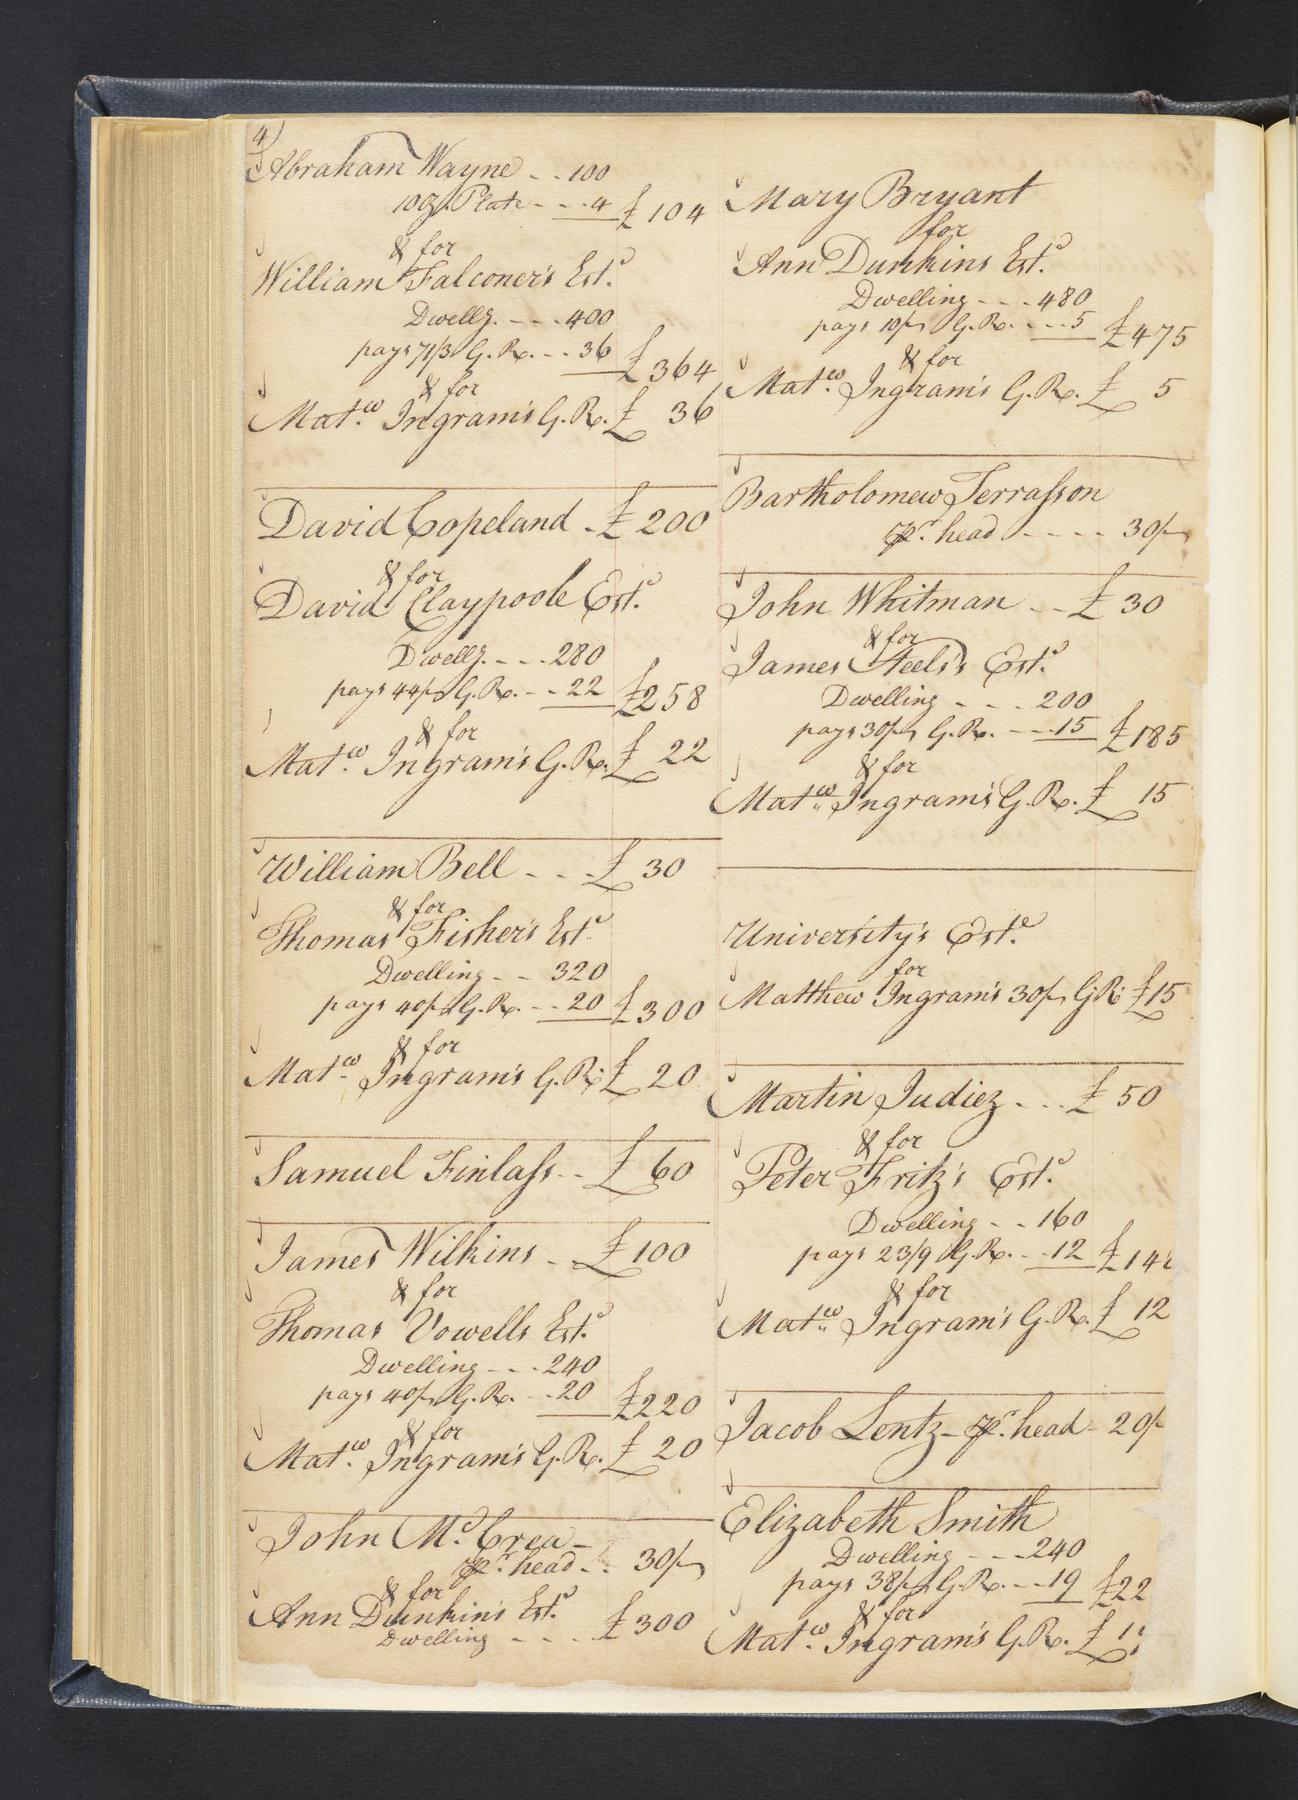 4)
Abraham Wayne - - 100
10 oz. Plate - - - 4 £ 104
& for
William Falconer's Est.e
Dwellg. - - - 400
pays 71/3 G. R. - - 36 £ 364
& for
Mat.w Ingram's G. R. £ 36
David Copeland - £ 200
& for
David Claypoole Est.e
Dwellg. - - - 280
pays 44/ G. R. - - 22 £ 258
& for
Mat.w Ingram's G. R. £ 22
William Bell - - - £ 30
& for
Thomas Fisher's Est.e
Dwelling - - 320
pays 40/ G. R. - - 20 £ 300
& for
Mat.w Ingram's G. R. £ 20
Samuel Finlass - - £ 60
James Wilkins - - £ 100
& for
Thomas Vowells Est.e
Dwelling - - - 240
pays 40/ G. R. - - 20 £ 220
& for
Mat.w Ingram's G. R. £ 20
John Mc.Crea -
pr. head - - 30/
& for
Ann Dunkin's Est.e
Dwelling - - - - £ 300
Mary Bryant
for
Ann Dunkins Est.e
Dwelling - - - 480
pays 10/ G. R. - - - 5 £ 475
& for
Mat.w Ingram's G. R. £ 5
Bartholomew Terrasson
pr. head - - - - 30/
John Whitman - - £ 30
& for
James Steels's Est.e
Dwelling - - - 200
pays 30/ G. R. - - - 15 £ 185
& for
Mat.w Ingram's G. R. £ 15
University's Est.e
for
Matthew Ingram's 30/ G. R. £ 15
Martin Judiez - - - £ 50
& for
Peter Fritz's Est.e
Dwelling - - 160
pays 23/9 G. R. - - 12 £ 14
& for
Mat.w Ingram's G. R. £ 12
Jacob Lentz - pr. head - 20/
Elizabeth Smith
Dwelling - - - 240
pays 38/ G. R. - - - 19 £ 22
& for
Mat.w Ingram's G. R. £ 1